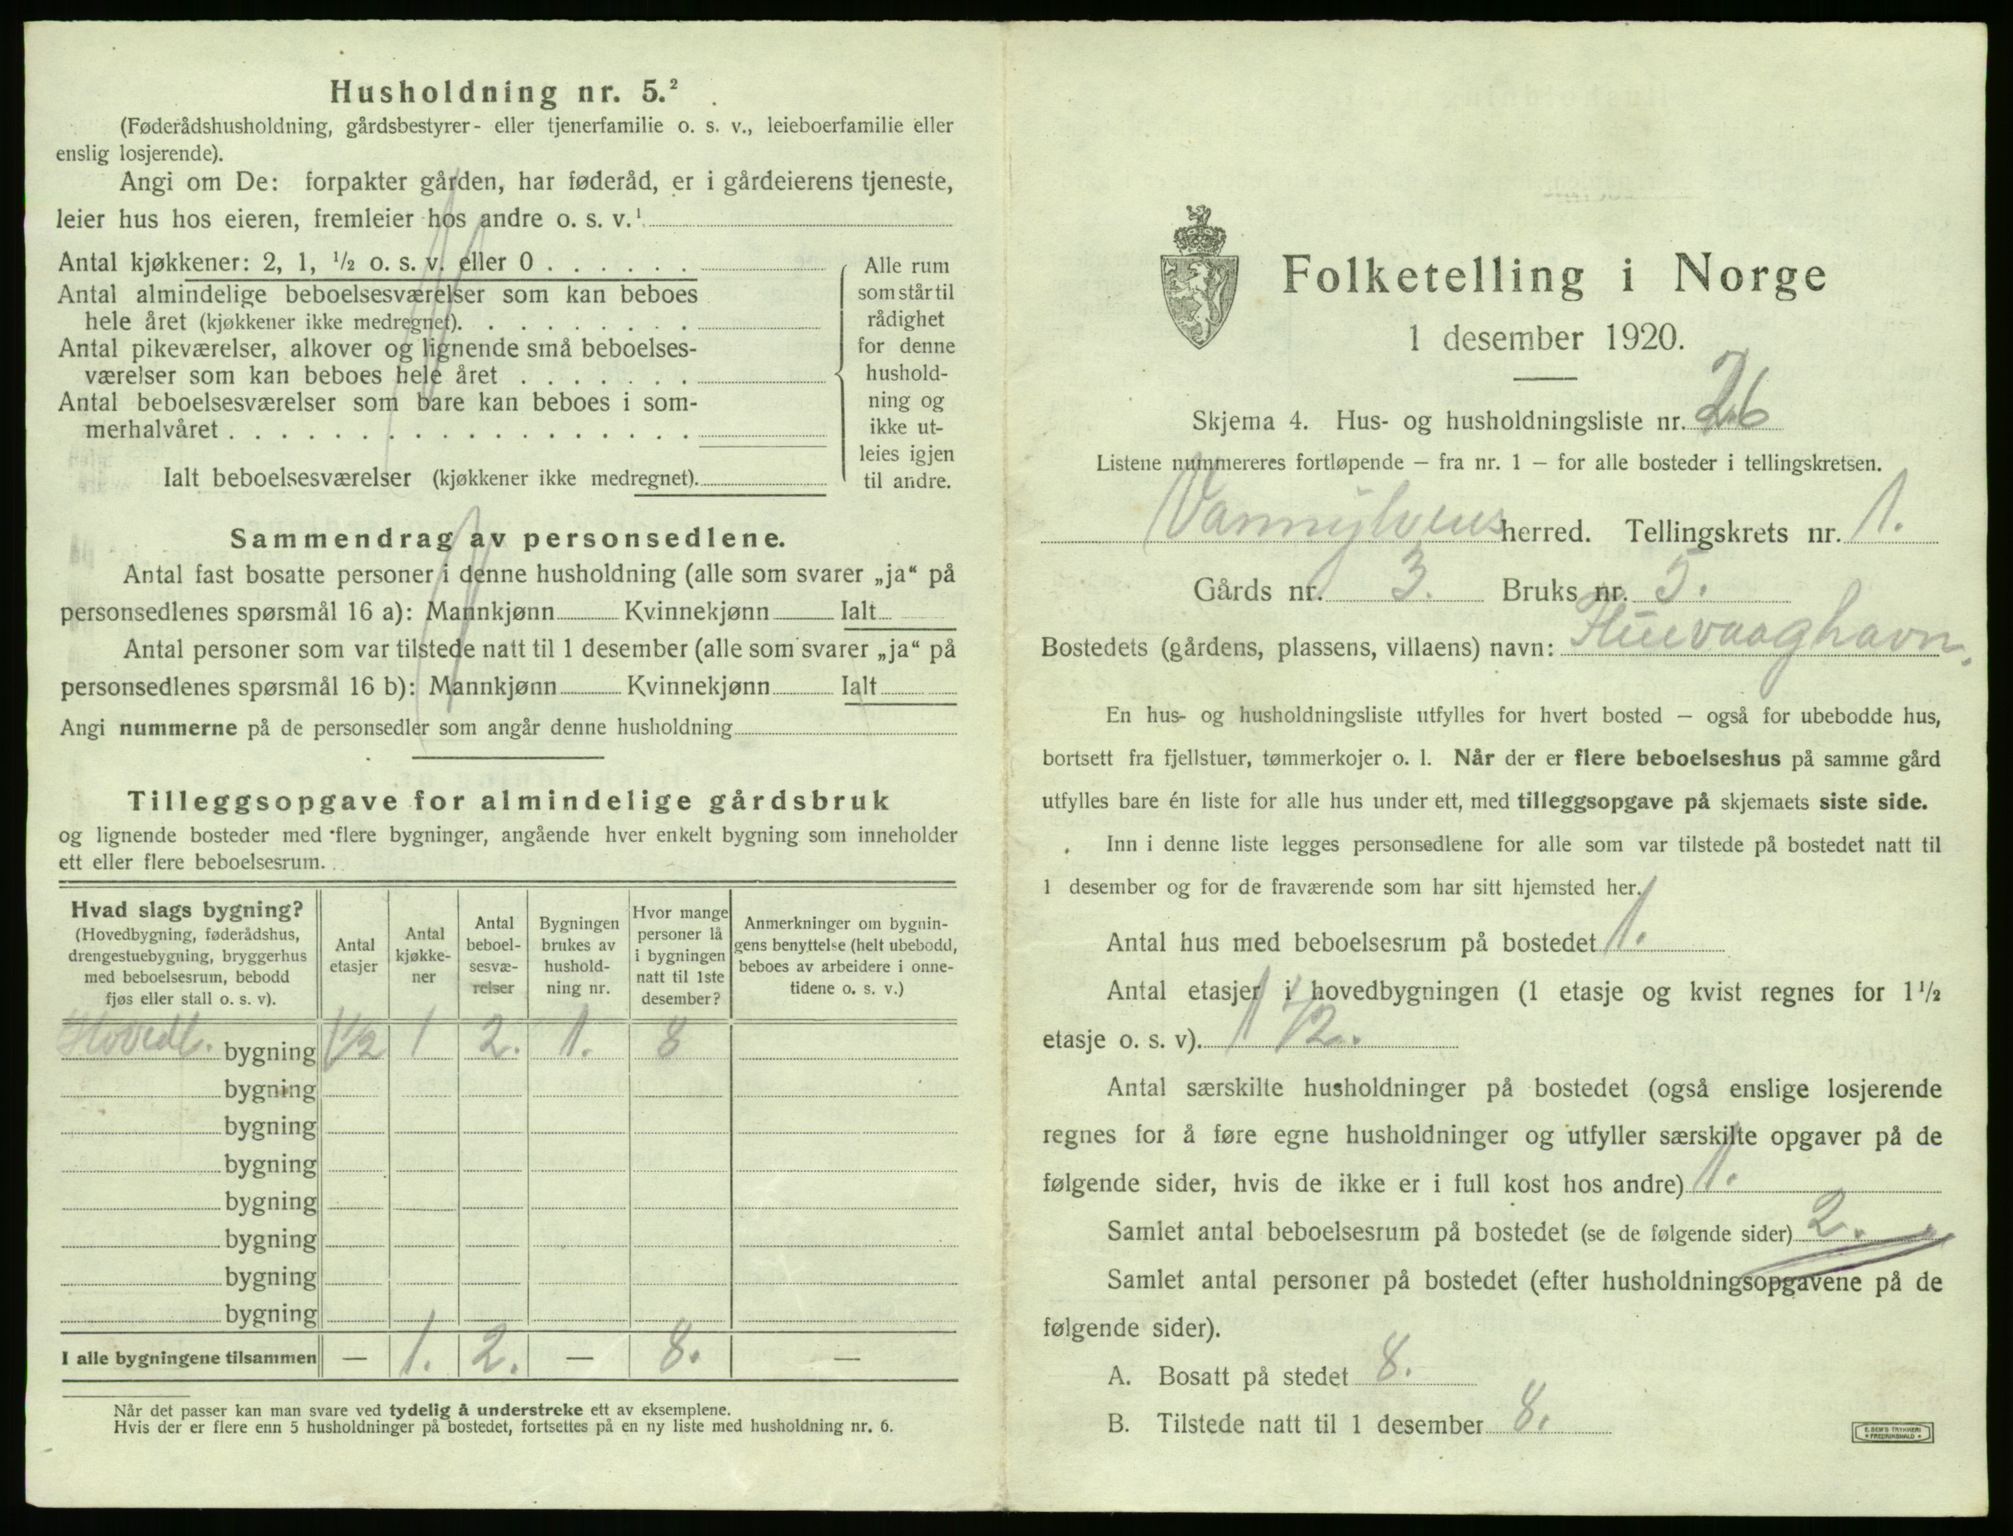 Husholdning nr. 5.²
(Føderådshusholdning, gårdsbestyrer- eller tjenerfamilie o. s. v., leieboerfamilie eller
enslig losjerende).
Angi om De: forpakter gården, har føderåd, er i gårdeierens tjeneste,
leier hus hos eieren, fremleier hos andre o. s. v.¹
Antal kjøkkener: 2, 1, ½ o. s. v. eller 0 . . . . . .
Antal almindelige beboelsesværelser som kan beboes
hele året (kjøkkener ikke medregnet). . . . . . . . .
Antal pikeværelser, alkover og lignende små beboelses-
værelser som kan beboes hele året . . . . . . .
Antal beboelsesværelser som bare kan beboes i som-
merhalvåret . . . . . . . . . . . . . . . . . .
Ialt beboelsesværelser (kjøkkener ikke medregnet).
Alle rum
som står til
rådighet
for denne
hushold-
ning og
ikke ut-
leies igjen
til andre.
Sammendrag av personsedlene.
Antal fast bosatte personer i denne husholdning (alle som svarer „ja“ på
personsedlenes spørsmål 16 a): Mannkjønn Kvinnekjønn Ialt
Antal personer som var tilstede natt til 1 desember (alle som svarer „ja“ på
personsedlenes spørsmål 16 b): Mannkjønn Kvinnekjønn Ialt
Angi nummerne på de personsedler som angår denne husholdning
Tilleggsopgave for almindelige gårdsbruk
og lignende bosteder med flere bygninger, angående hver enkelt bygning som inneholder
ett eller flere beboelsesrum.
Hvad slags bygning?
(Hovedbygning, føderådshus,
drengestuebygning, bryggerhus
med beboelsesrum, bebodd
fjøs eller stall o. s. v).
Antal
etasjer
Antal
kjøkke-
ner
Antal
beboel-
sesvæ-
relser
Bygningen
brukes av
hushold-
ning nr.
Hvor mange
personer lå
i bygningen
natt til 1ste
desember?
Anmerkninger om bygnin-
gens benyttelse (helt ubebodd,
beboes av arbeidere i onne-
tidene o. s. v.)
Hovedb. bygning 1½ 1 2. 1. 8
bygning
bygning
bygning
bygning
bygning
bygning
bygning
I alle bygningene tilsammen — 1. 2. — 8. —
Når det passer kan man svare ved tydelig å understreke ett av eksemplene.
Hvis der er flere enn 5 husholdninger på bostedet, fortsettes på en ny liste med husholdning nr. 6.
Folketelling i Norge
1 desember 1920.
Skjema 4. Hus- og husholdningsliste nr. 26
Listene nummereres fortløpende — fra nr. 1 — for alle bosteder i tellingskretsen.
Vannylvens herred. Tellingskrets nr. 1.
Gårds nr. 3. Bruks nr. 5.
Bostedets (gårdens, plassens, villaens) navn:
En hus- og husholdningsliste utfylles for hvert bosted — også for ubebodde hus,
bortsett fra fjellstuer, tømmerkojer o. l. Når der er flere beboelseshus på samme gård
utfylles bare én liste for alle hus under ett, med tilleggsopgave på skjemaets siste side.
Inn i denne liste legges personsedlene for alle som var tilstede på bostedet natt til
1 desember og for de fraværende som har sitt hjemsted her.
Antal hus med beboelsesrum på bostedet 1.
Antal etasjer i hovedbygningen (1 etasje og kvist regnes for 1½
etasje o. s. v). 1 1/2.
Antal særskilte husholdninger på bostedet (også enslige losjerende
regnes for å føre egne husholdninger og utfyller særskilte opgaver på de
følgende sider, hvis de ikke er i full kost hos andre) 1.
Samlet antal beboelsesrum på bostedet (se de følgende sider) 2.
Samlet antal personer på bostedet (efter husholdningsopgavene på de
følgende sider).
A. Bosatt på stedet 8.
B. Tilstede natt til 1 desember 8.
E. SEM'S TRYKKERI
FREDRIKSHALD